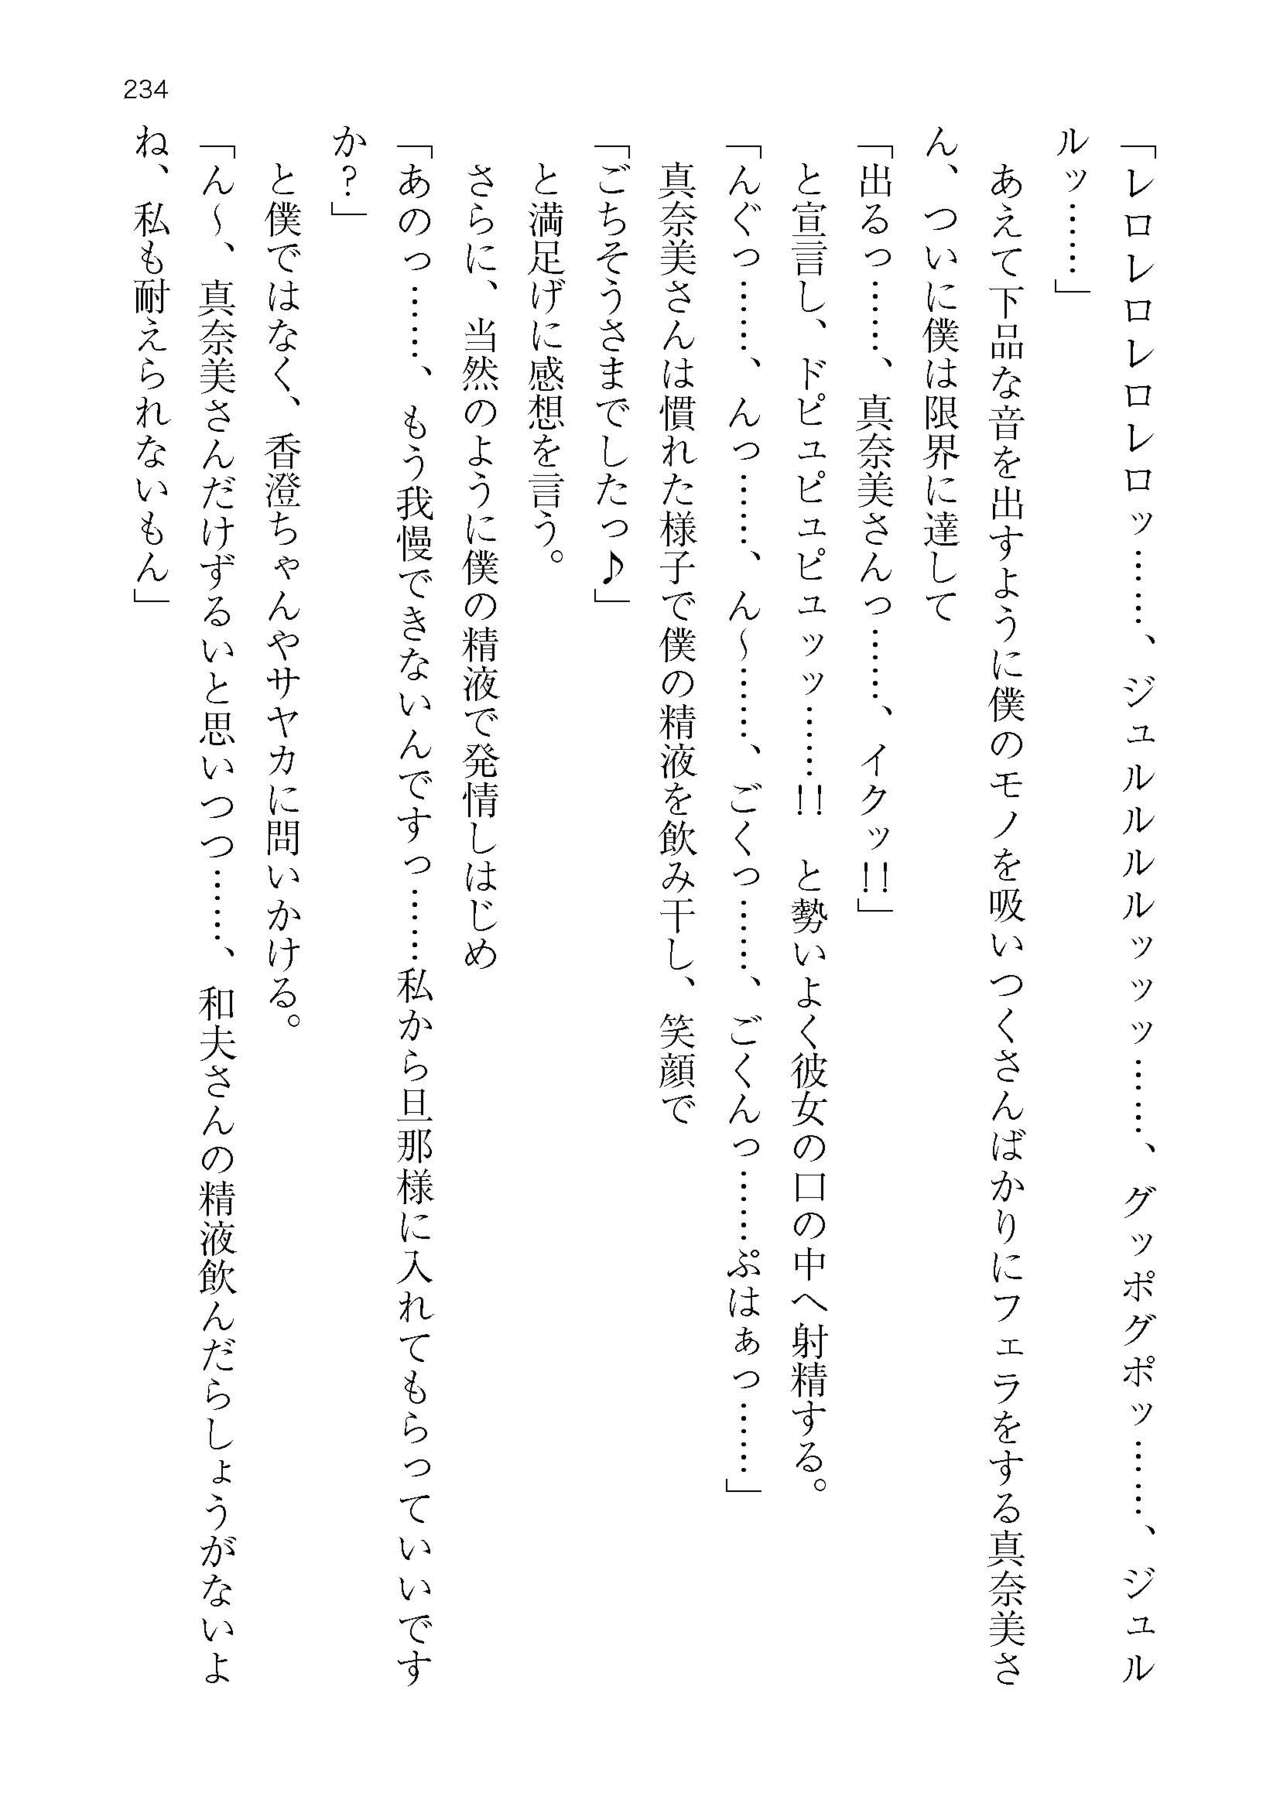 234
「レロレロレロレロッ……、ジュルルルルッッッ……、グッポグポッ……、ジュル
ルッ……」
あえて下品な音を出すように僕のモノを吸いつくさんばかりにフェラをする真奈美さ
ん、ついに僕は限界に達して
「出るっ……、真奈美さんっ……、イクッ!!」
と宣言し、ドピュピュピュッッ……!!　と勢いよく彼女の口の中へ射精する。
「んぐっ……、んっ……、ん〜……、ごくっ……、ごくんっ……ぷはぁっ……」
真奈美さんは慣れた様子で僕の精液を飲み干し、笑顔で
「ごちそうさまでしたっ♪」
と満足げに感想を言う。
さらに、当然のように僕の精液で発情しはじめ
「あのっ……、もう我慢できないんですっ……私から旦那様に入れてもらっていいです
か？」
と僕ではなく、香澄ちゃんやサヤカに問いかける。
「ん〜、真奈美さんだけずるいと思いつつ……、和夫さんの精液飲んだらしょうがないよ
ね、私も耐えられないもん」